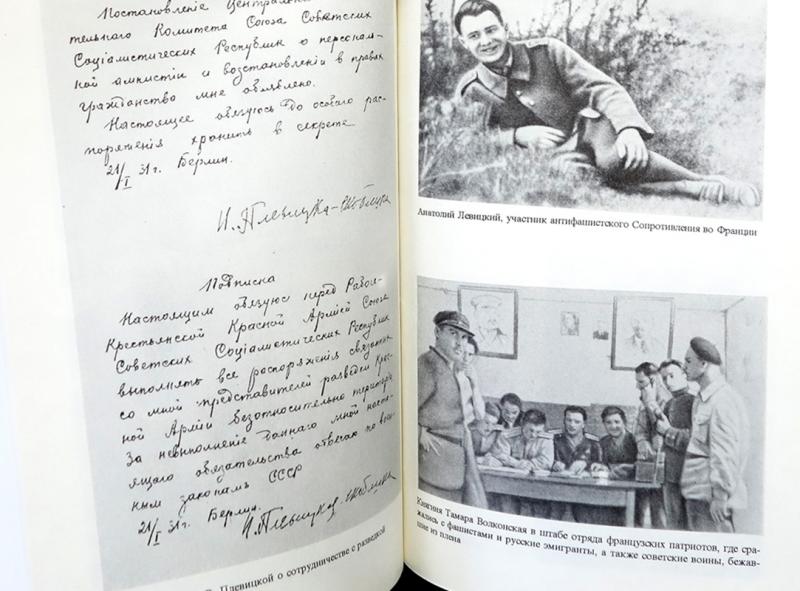 Постановленіе Централь
тельнаго Комитета Союза Советских
Соціалистических Республик о персональ-
ной амнистіи и возстановленіи в правах
гражданства мне объявлено.
Настоящее обязуюсь до особаго рас-
поряженія хранить в секрете
21/I 31 г. Берлин.
Н. Плевицкая-Скоблина
Подписка
Настоящим обязуюсь перед Рабоче-
Крестьянской Красной Арміей Союза
Советских Соціалистических Республик
выполнять все распоряженія связанных
со мной представителей разведки Крас-
ной Арміи безотносительно территоріи.
За невыполненіе даннаго мной насто-
ящаго обязательства отвечаю по воен-
ным законам СССР
21/I 31 г. Берлин.
Н. Плевицкая-Скоблина
Плевицкой о сотрудничестве с разведкой
Анатолий Левицкий, участник антифашистского Сопротивления во Франции
Княгиня Тамара Волконская в штабе отряда французских патриотов, где сра-
жались с фашистами и русские эмигранты, а также советские воины, бежав-
шие из плена